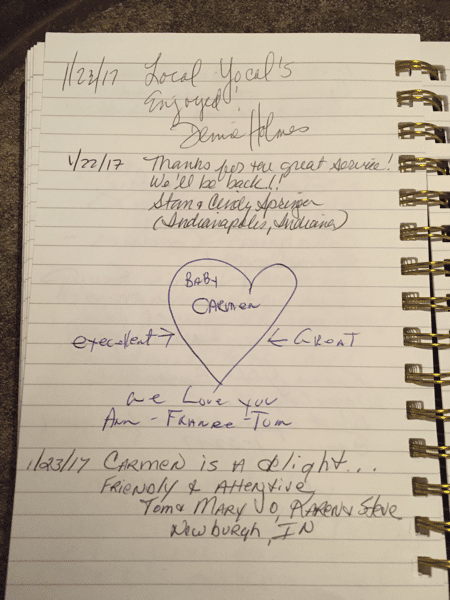 1/23/17 Local Yocal's
Enjoyed!
Denise Holmes
1/22/17 Thanks for the great service!
We'll be back!!
Stan & Cindy Springer
(Indianapolis, Indiana)
BABY
CARMEN
execellent → ← GREAT
we Love you
Ann - FRANKE - Tom
1/23/17 CARMEN is A delight...
FRIENDLY & Attentive
Tom & MARY JO, KAREN & Steve
Newburgh, IN